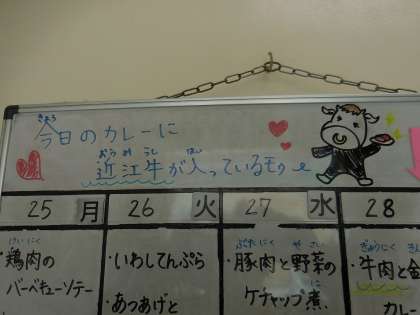 きょう
今日のカレーに
おうみ うし はい
近江牛が入っているモゥ
25 月 26 火 27 水 28
けいにく
鶏肉の
バーベキューソテー
・いわしてんぷら
・あつあげと
ぶたにく や さい
・豚肉と野菜の
ケチャップ煮
ぎゅうにく
・牛肉と
カレー